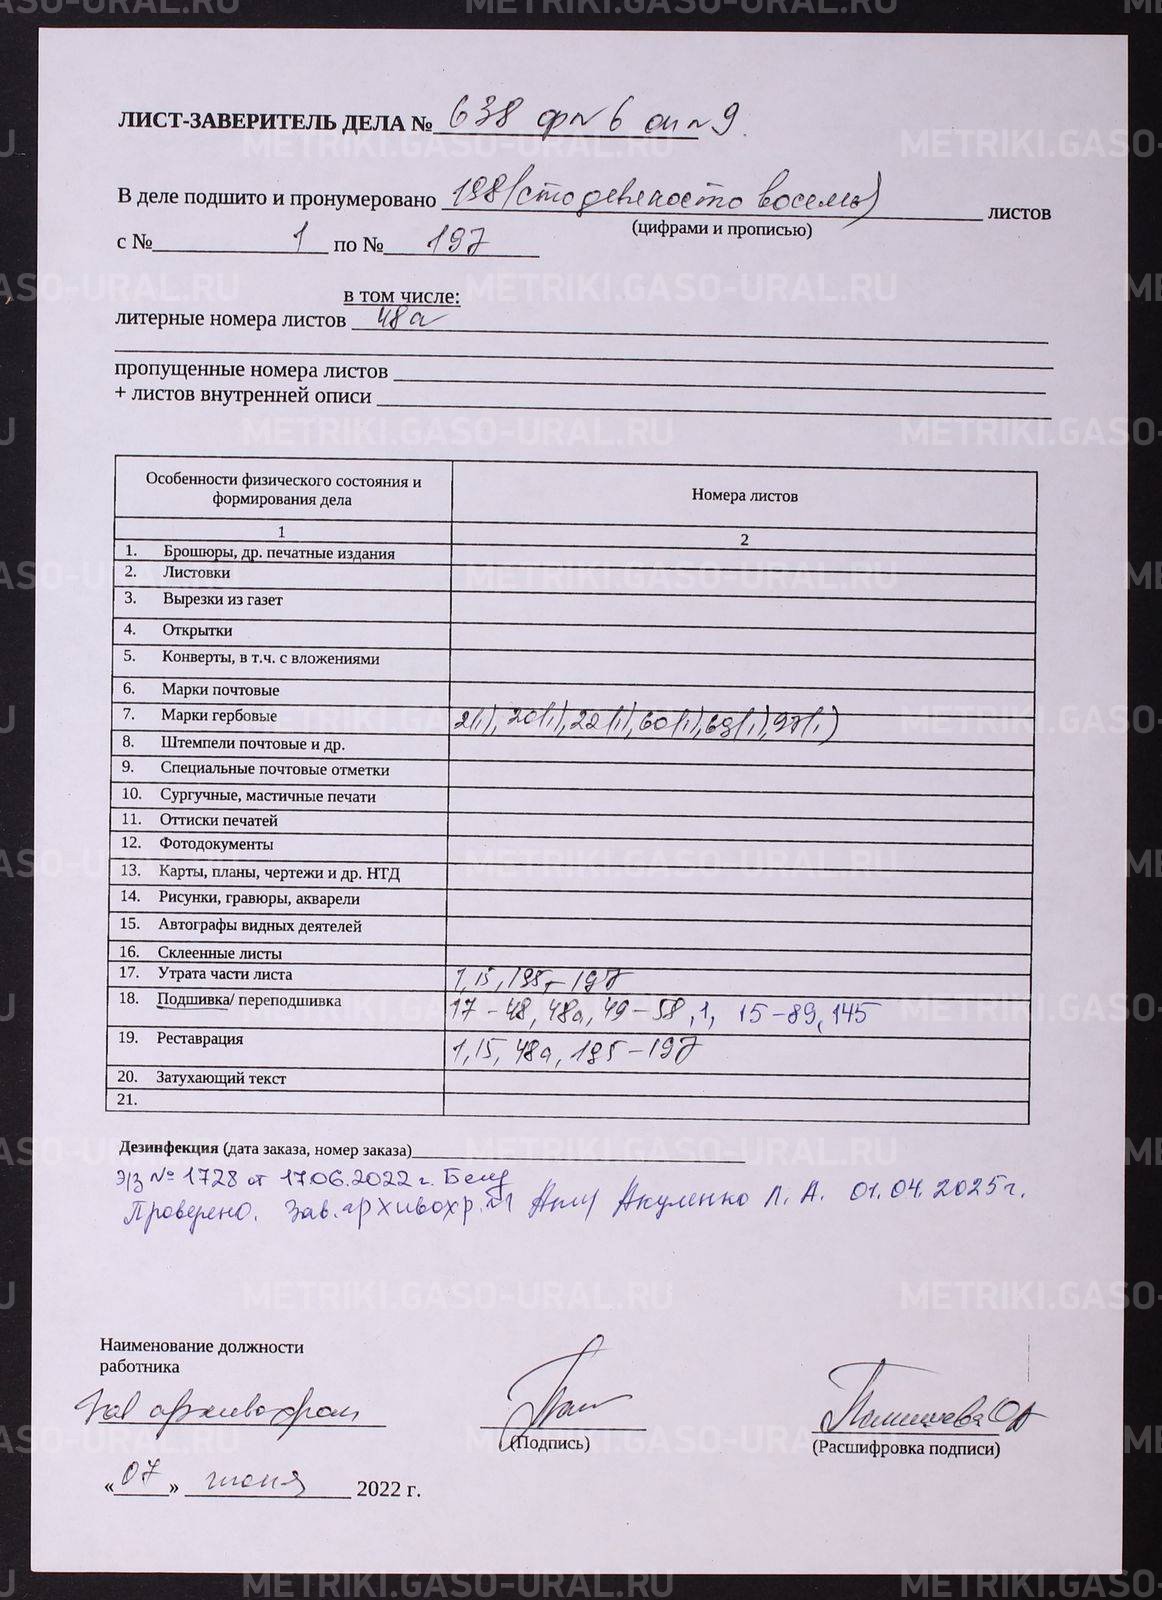 ЛИСТ-ЗАВЕРИТЕЛЬ ДЕЛА № 638 ф № 6 оп № 9.
В деле подшито и пронумеровано 198 (сто девяносто восемь) листов
(цифрами и прописью)
с № 1 по № 197
в том числе:
литерные номера листов 48а
пропущенные номера листов
+ листов внутренней описи
Особенности физического состояния и формирования дела Номера листов
1 2
1. Брошюры, др. печатные издания
2. Листовки
3. Вырезки из газет
4. Открытки
5. Конверты, в т.ч. с вложениями
6. Марки почтовые
7. Марки гербовые 2(1), 20(1), 22(1), 60(1), 69(1), 97(1)
8. Штемпели почтовые и др.
9. Специальные почтовые отметки
10. Сургучные, мастичные печати
11. Оттиски печатей
12. Фотодокументы
13. Карты, планы, чертежи и др. НТД
14. Рисунки, гравюры, акварели
15. Автографы видных деятелей
16. Склеенные листы
17. Утрата части листа 1, 15, 195 – 197
18. Подшивка/ переподшивка 17 – 48, 48а, 49 – 58, 1, 15 – 89, 145
19. Реставрация 1, 15, 48а, 195 – 197
20. Затухающий текст
21.
Дезинфекция (дата заказа, номер заказа)
Э/З № 1728 от 17.06.2022 г.
Проверено. Зав. архивохр. Акуленко Л. А. 01.04.2025 г.
Наименование должности
работника
Зав архивохран
(Подпись) (Расшифровка подписи)
«07» июня 2022 г.
METRIKI.GASO-URAL.RU